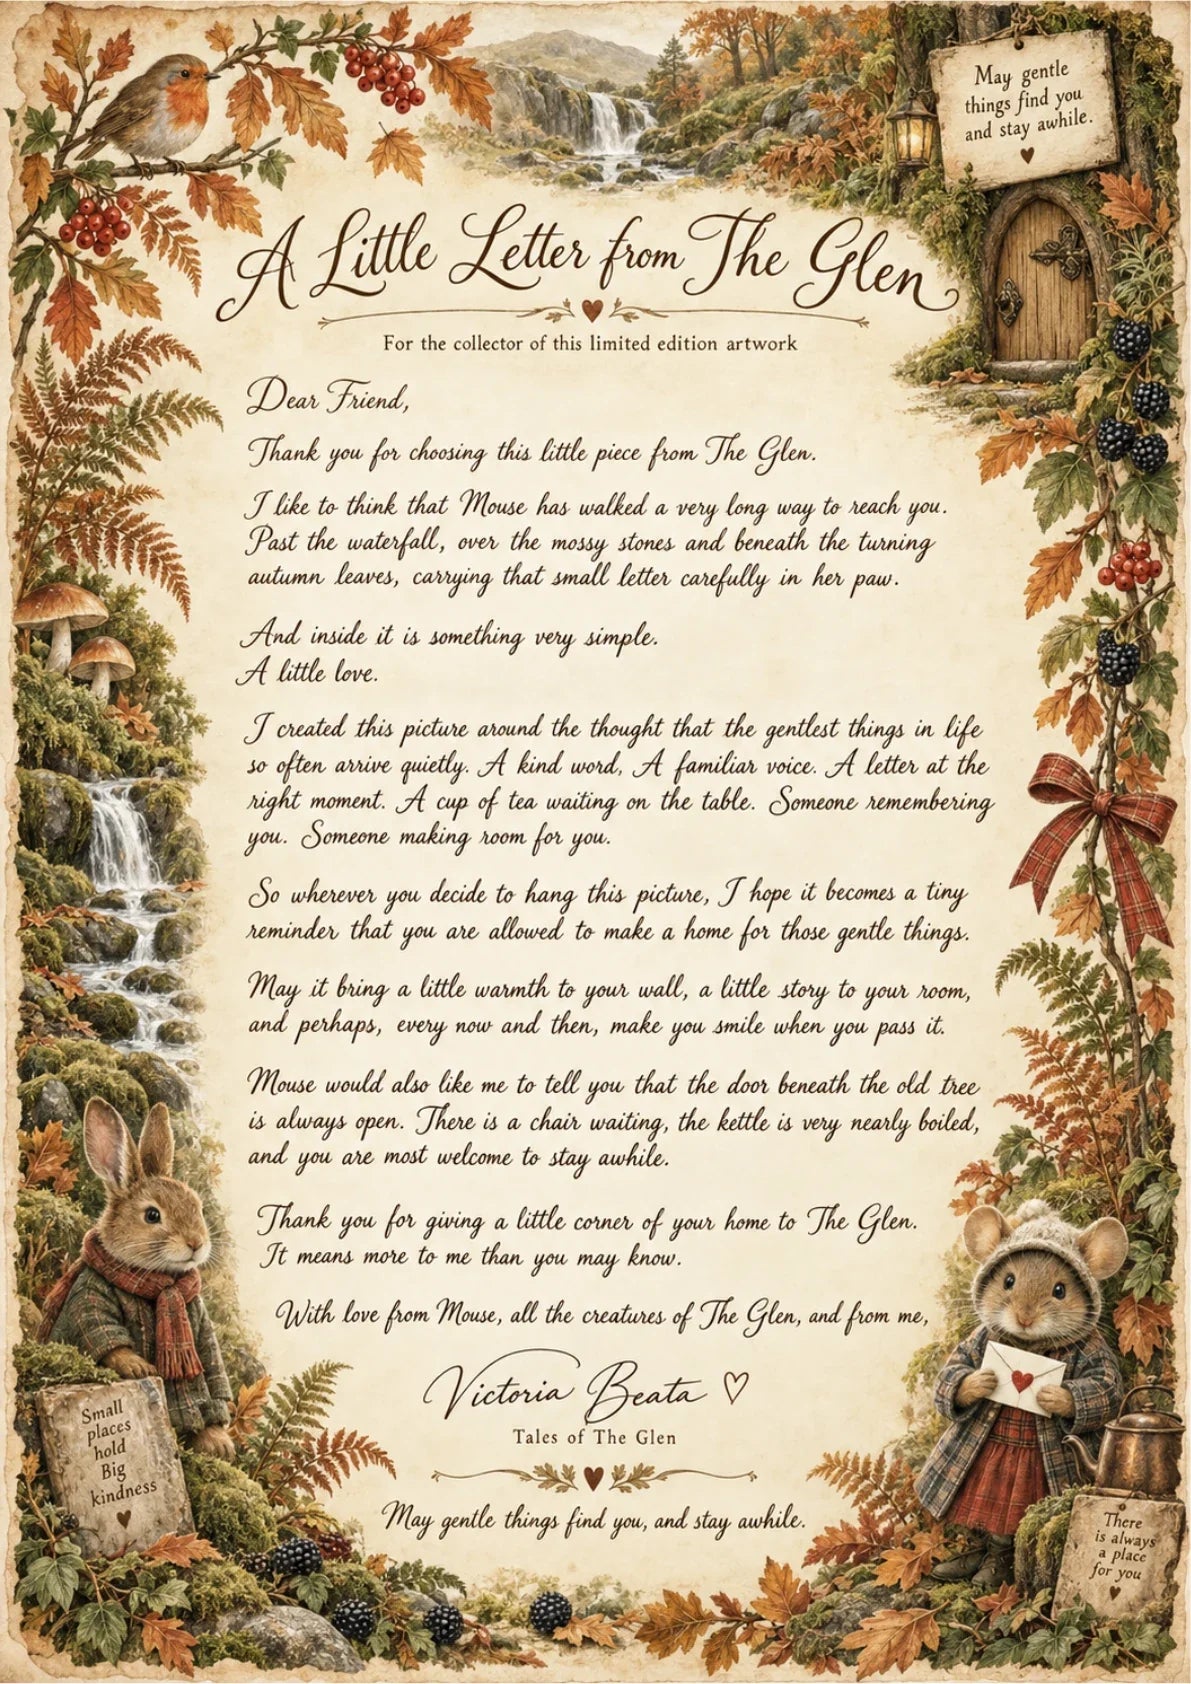 May gentle
things find you
and stay awhile.
A Little Letter from The Glen
For the collector of this limited edition artwork
Dear Friend,
Thank you for choosing this little piece from The Glen.
I like to think that Mouse has walked a very long way to reach you.
Past the waterfall, over the mossy stones and beneath the turning
autumn leaves, carrying that small letter carefully in her paw.
And inside it is something very simple.
A little love.
I created this picture around the thought that the gentlest things in life
so often arrive quietly. A kind word, A familiar voice. A letter at the
right moment. A cup of tea waiting on the table. Someone remembering
you. Someone making room for you.
So wherever you decide to hang this picture, I hope it becomes a tiny
reminder that you are allowed to make a home for those gentle things.
May it bring a little warmth to your wall, a little story to your room,
and perhaps, every now and then, make you smile when you pass it.
Mouse would also like me to tell you that the door beneath the old tree
is always open. There is a chair waiting, the kettle is very nearly boiled,
and you are most welcome to stay awhile.
Thank you for giving a little corner of your home to The Glen.
It means more to me than you may know.
With love from Mouse, all the creatures of The Glen, and from me,
Victoria Beata
Tales of The Glen
May gentle things find you, and stay awhile.
Small
places
hold
Big
kindness
There
is always
a place
for you